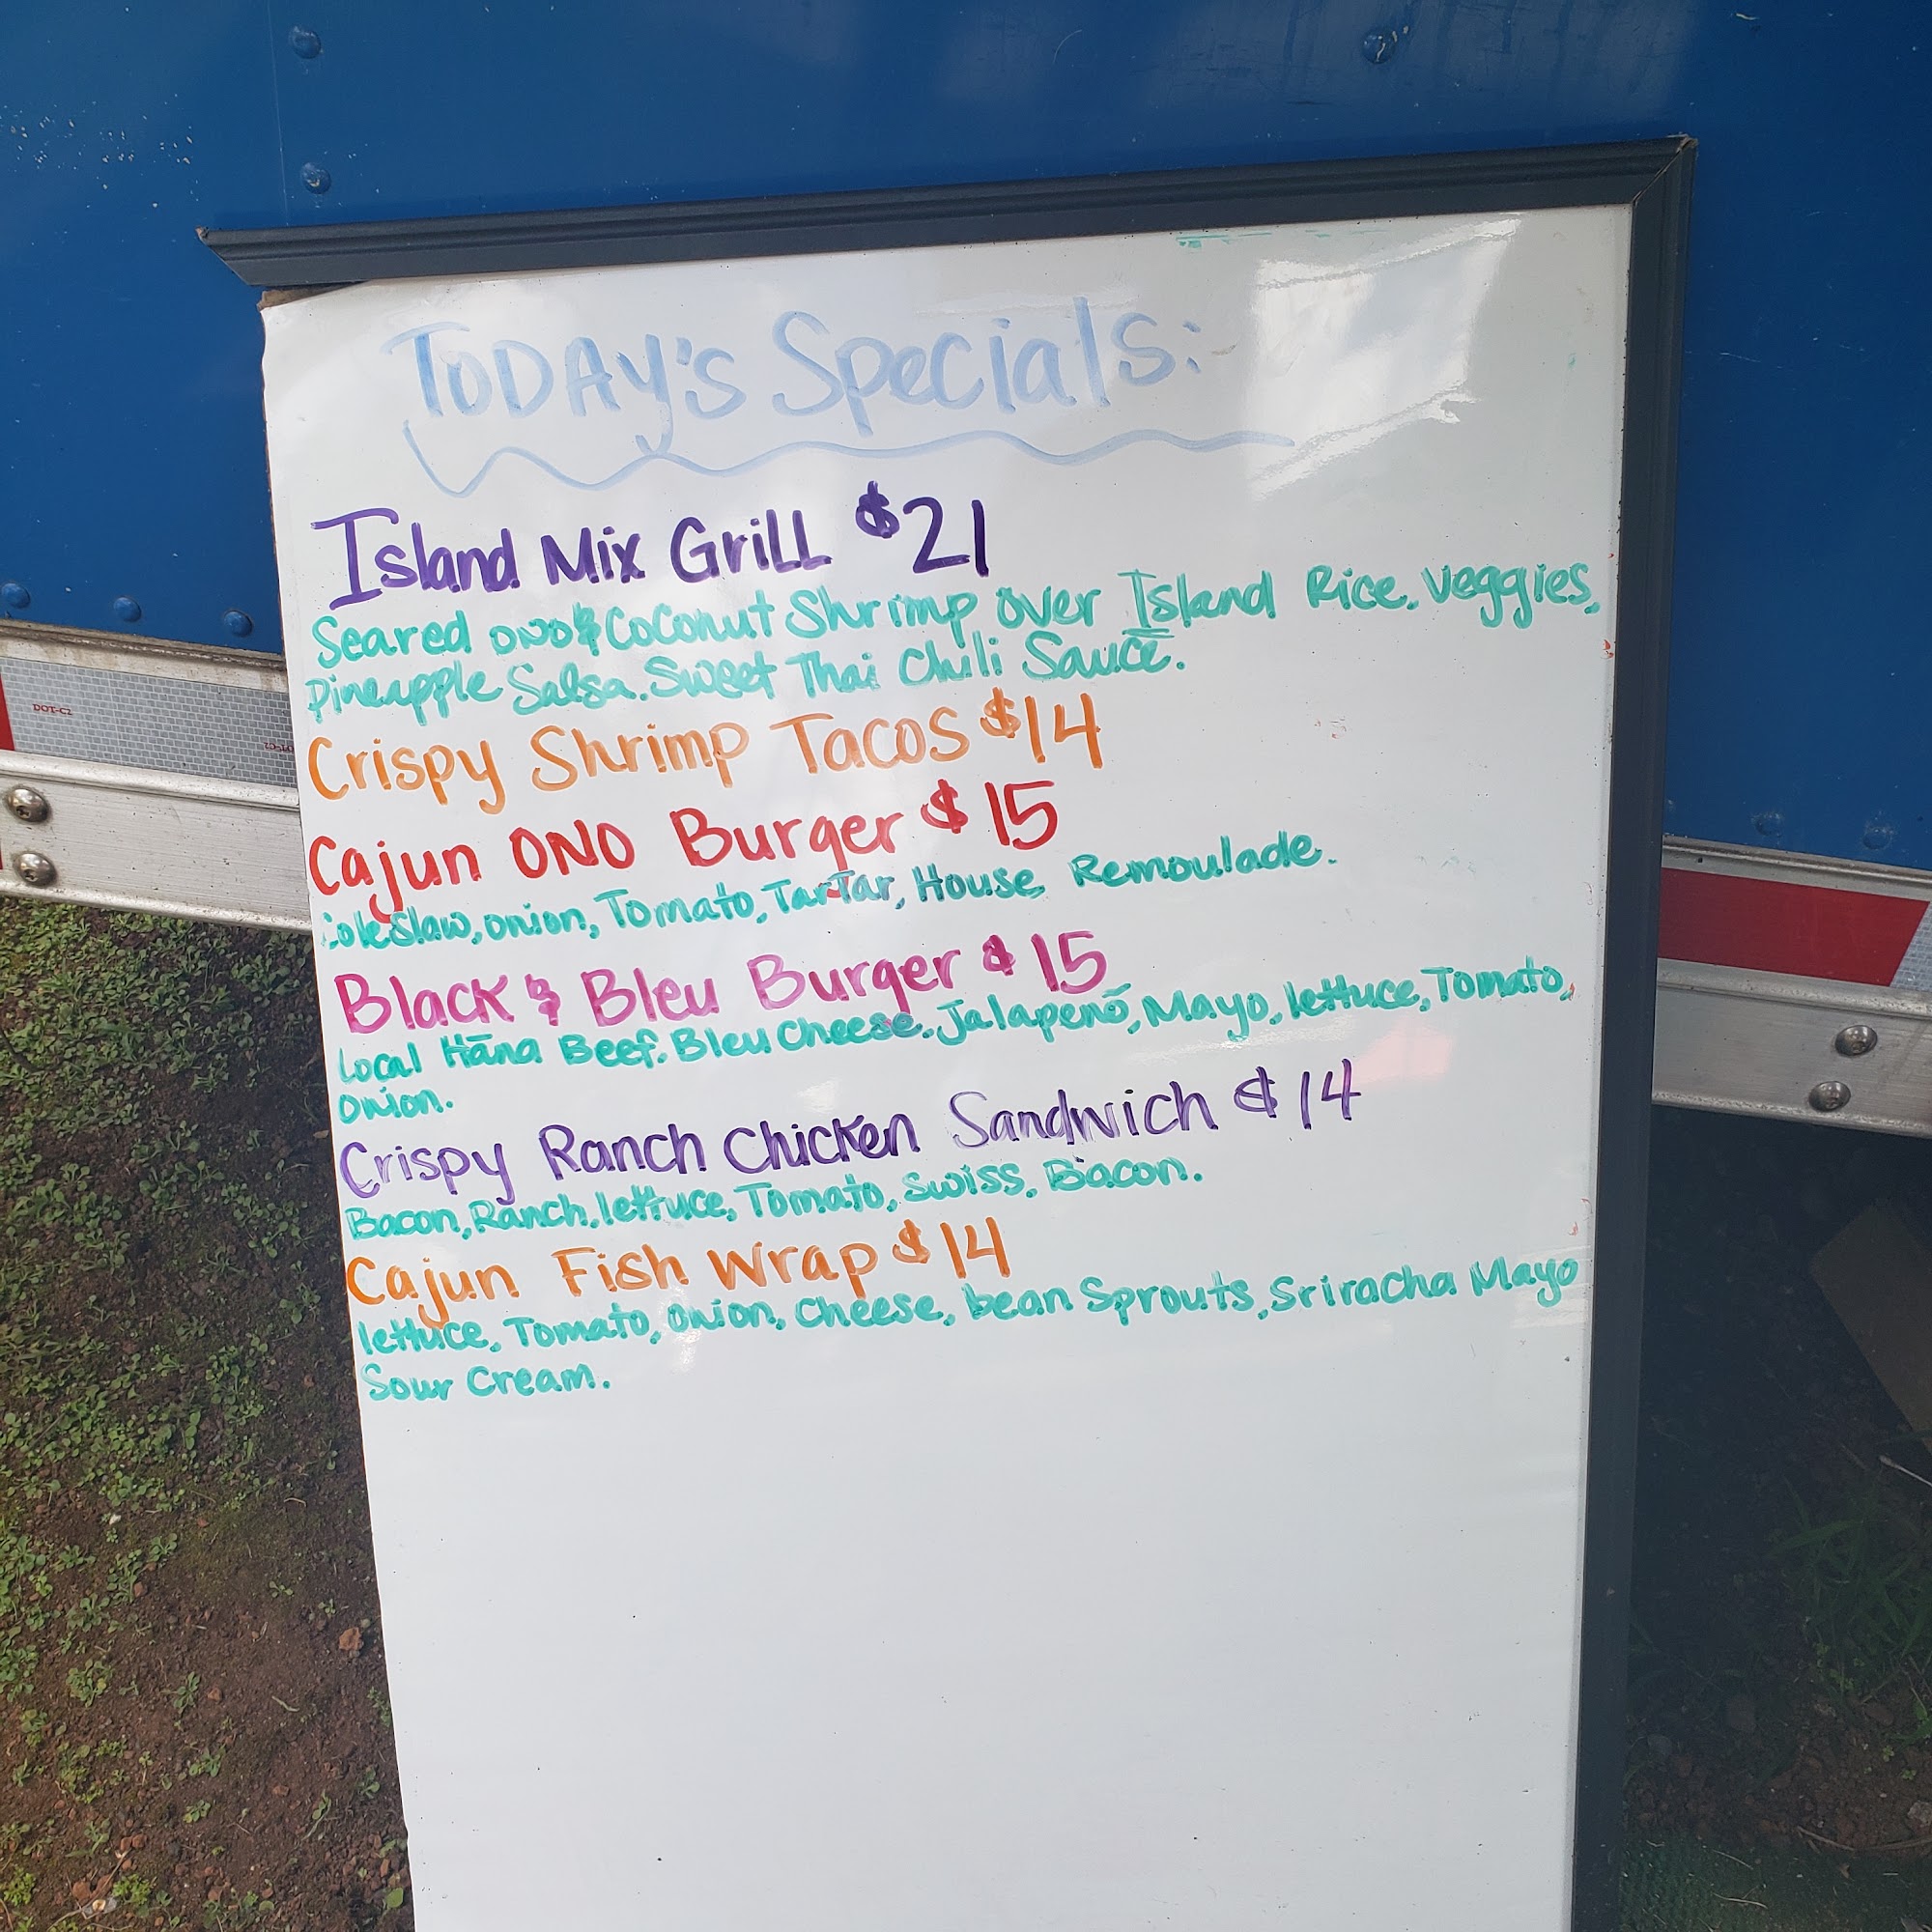 TODAY's Specials:
Island Mix Grill $21
Seared ONO & Coconut Shrimp over Island Rice, Veggies,
Pineapple Salsa. Sweet Thai Chili Sauce.
Crispy Shrimp Tacos $14
Cajun ONO Burger $15
Coleslaw, onion, Tomato, TarTar, House Remoulade.
Black & Bleu Burger $15
Local Hāna Beef. Bleu Cheese. Jalapenō, Mayo, lettuce, Tomato,
Onion.
Crispy Ranch Chicken Sandwich $14
Bacon, Ranch, lettuce, Tomato, Swiss, Bacon.
Cajun Fish Wrap $14
lettuce, Tomato, Onion, Cheese, bean Sprouts, Sriracha Mayo
Sour Cream.
DOT-C2